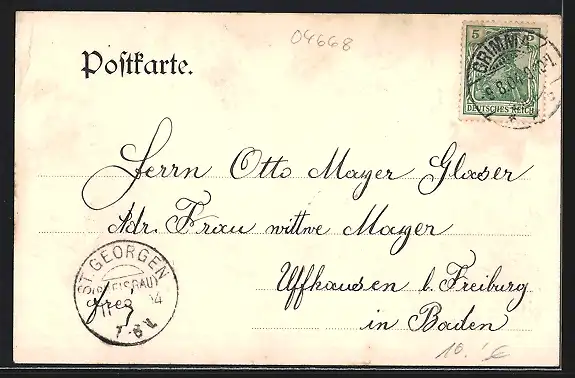 04668
Postkarte.
5
DEUTSCHES REICH
GRIMMA
Herrn Otto Mayer Glaser
Adr. Frau wittwe Mayer
Uffhausen b. Freiburg
in Baden
ST GEORGEN
frei
7-8V.
10.- €